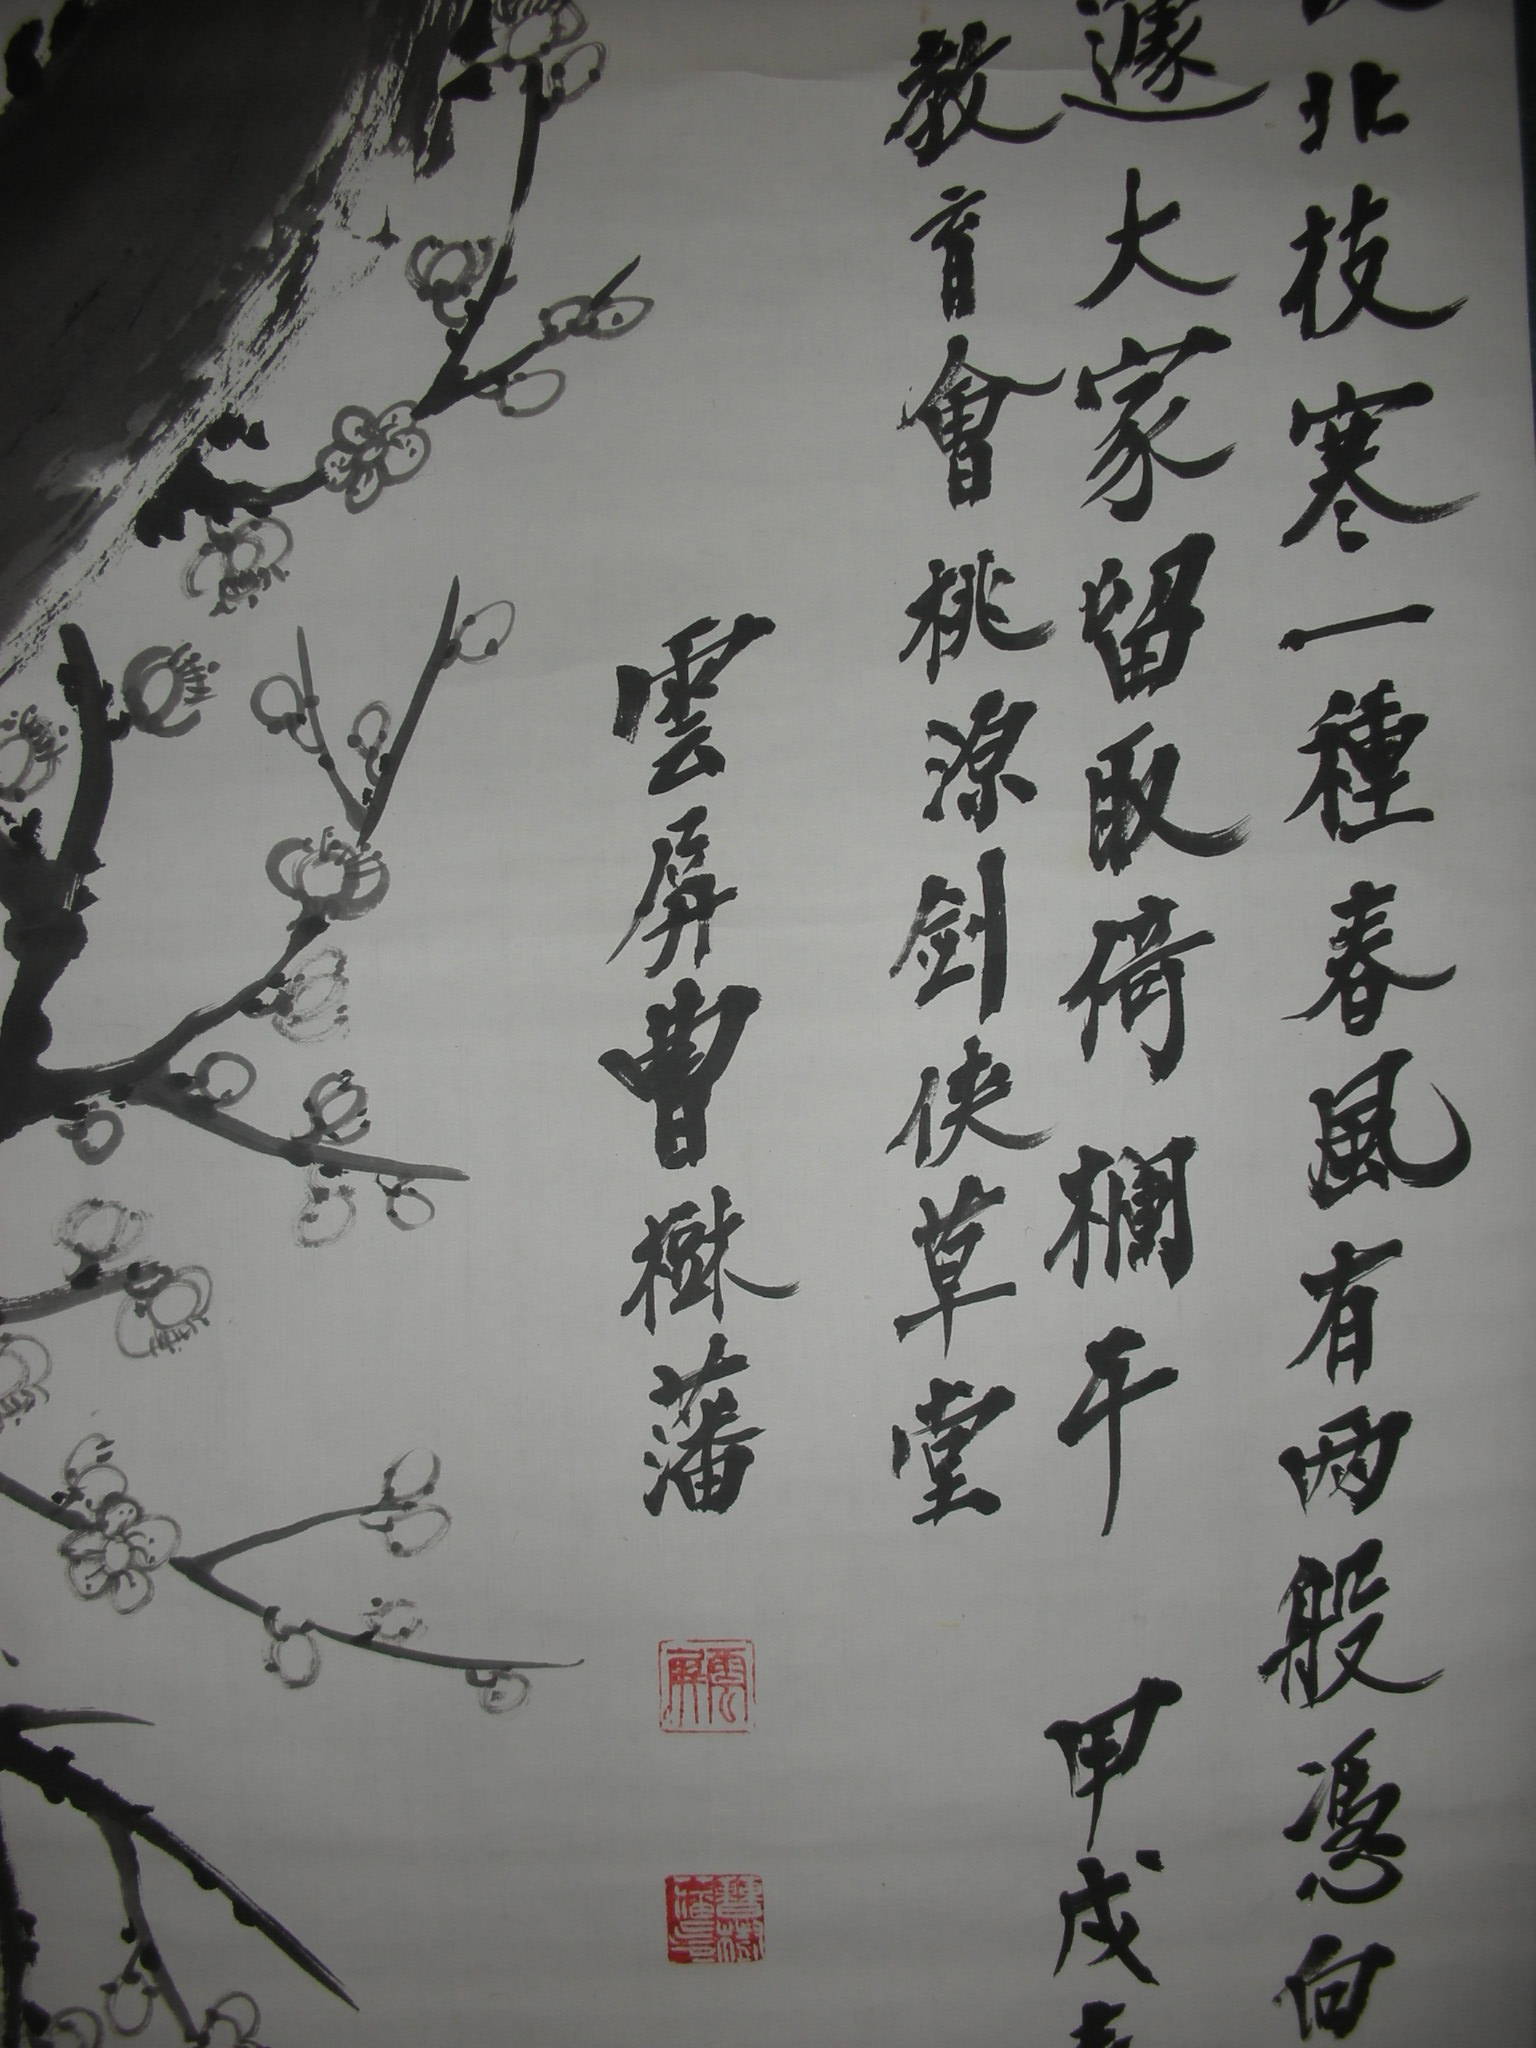 北枝寒一種春風有兩般憑向
遽大家留取倚欄干 甲戌春
教育會桃源剑俠草堂
雲屏曹樾藩
雲屏